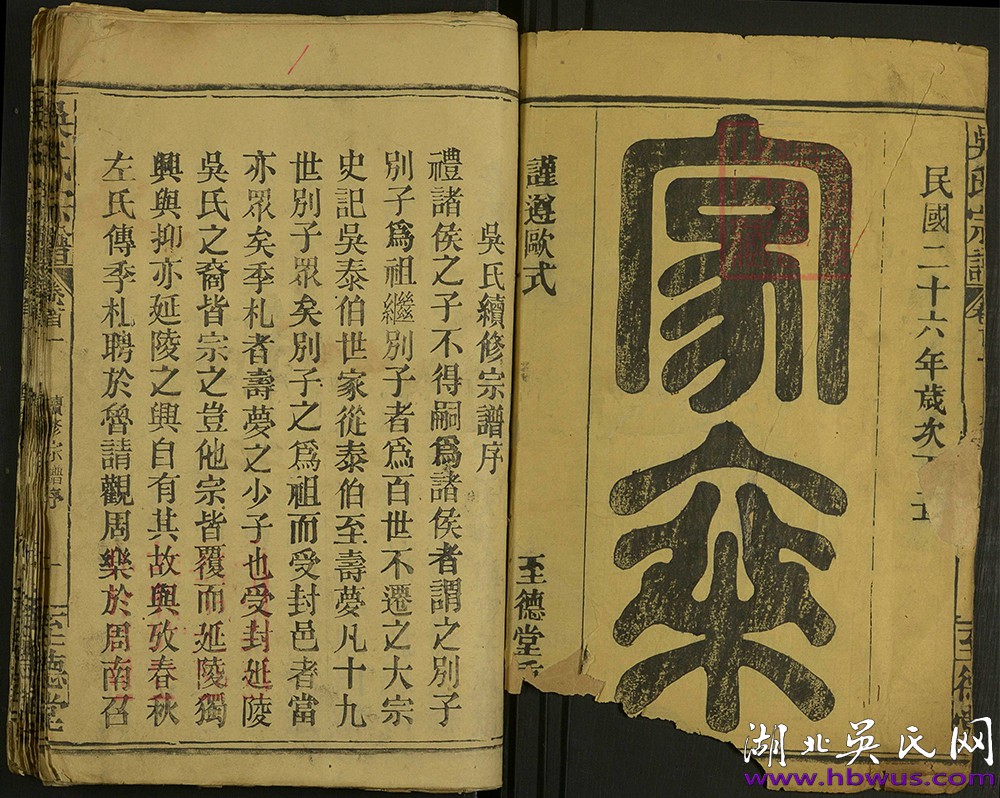 吳氏宗譜
至德堂
民國二十六年歲次
家乘
謹遵歐式
至德堂
吳氏續修宗譜序
禮諸侯之子不得嗣爲諸侯者謂之別子
別子爲祖繼別子者爲百世不遷之大宗
史記吳泰伯世家從泰伯至壽夢凡十九
世別子眾矣別子之爲祖而受封邑者當
亦眾矣季札者壽夢之少子也受封延陵
吳氏之裔皆宗之豈他宗皆覆而延陵獨
興與抑亦延陵之興自有其故與攷春秋
左氏傳季札聘於魯請觀周樂於周南召
吳氏宗譜 卷首一 續修宗譜序 一 至德堂
湖北吴氏网
www.hbwus.com